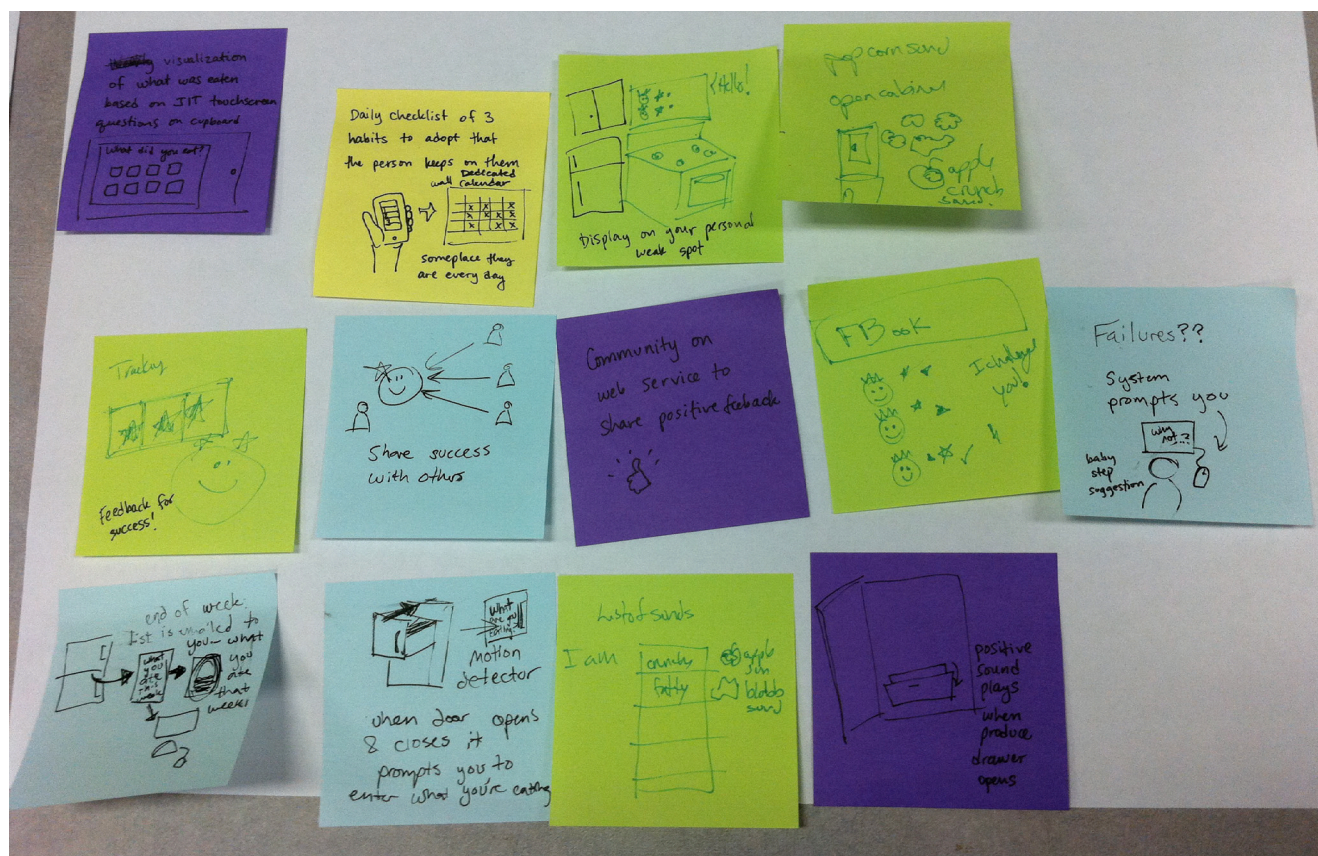 visualization
of what was eaten
based on JIT touchscreen
questions on cupboard
What did you eat?
Daily checklist of 3
habits to adopt that
the person keeps on them
Dedicated
wall calendar
someplace they
are every day
Hello!
Display on your personal
weak spot
popcorn sund
open cabinet
apple
crunch
sund.
Tracking
Feedback for
success!
Share success
with others
Community on
web service to
share positive feeback
FBook
I challenge
you!
Failures??
System
prompts you
why
not..?
baby
step
suggestion
end of week:
list is emailed to
you - what
you
ate
that
week
what
you
ate
this
week
What
are you
eating?
Motion
detector
when door opens
& closes it
prompts you to
enter what you're eating
List of sunds
I am
crunchy
fatty
apple
sun
blobb
sund
positive
sound
plays
when
produce
drawer
opens